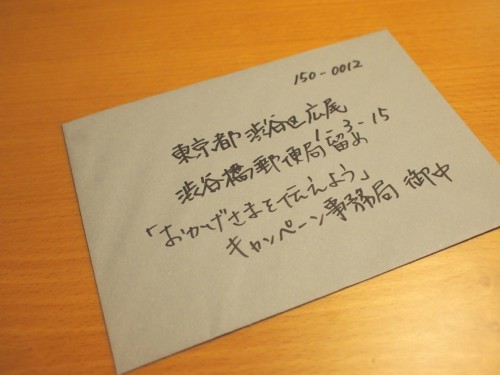 150-0012
東京都渋谷区広尾
1-3-15
渋谷橋郵便局留め
「おかげさまを伝えよう」
キャンペーン事務局 御中